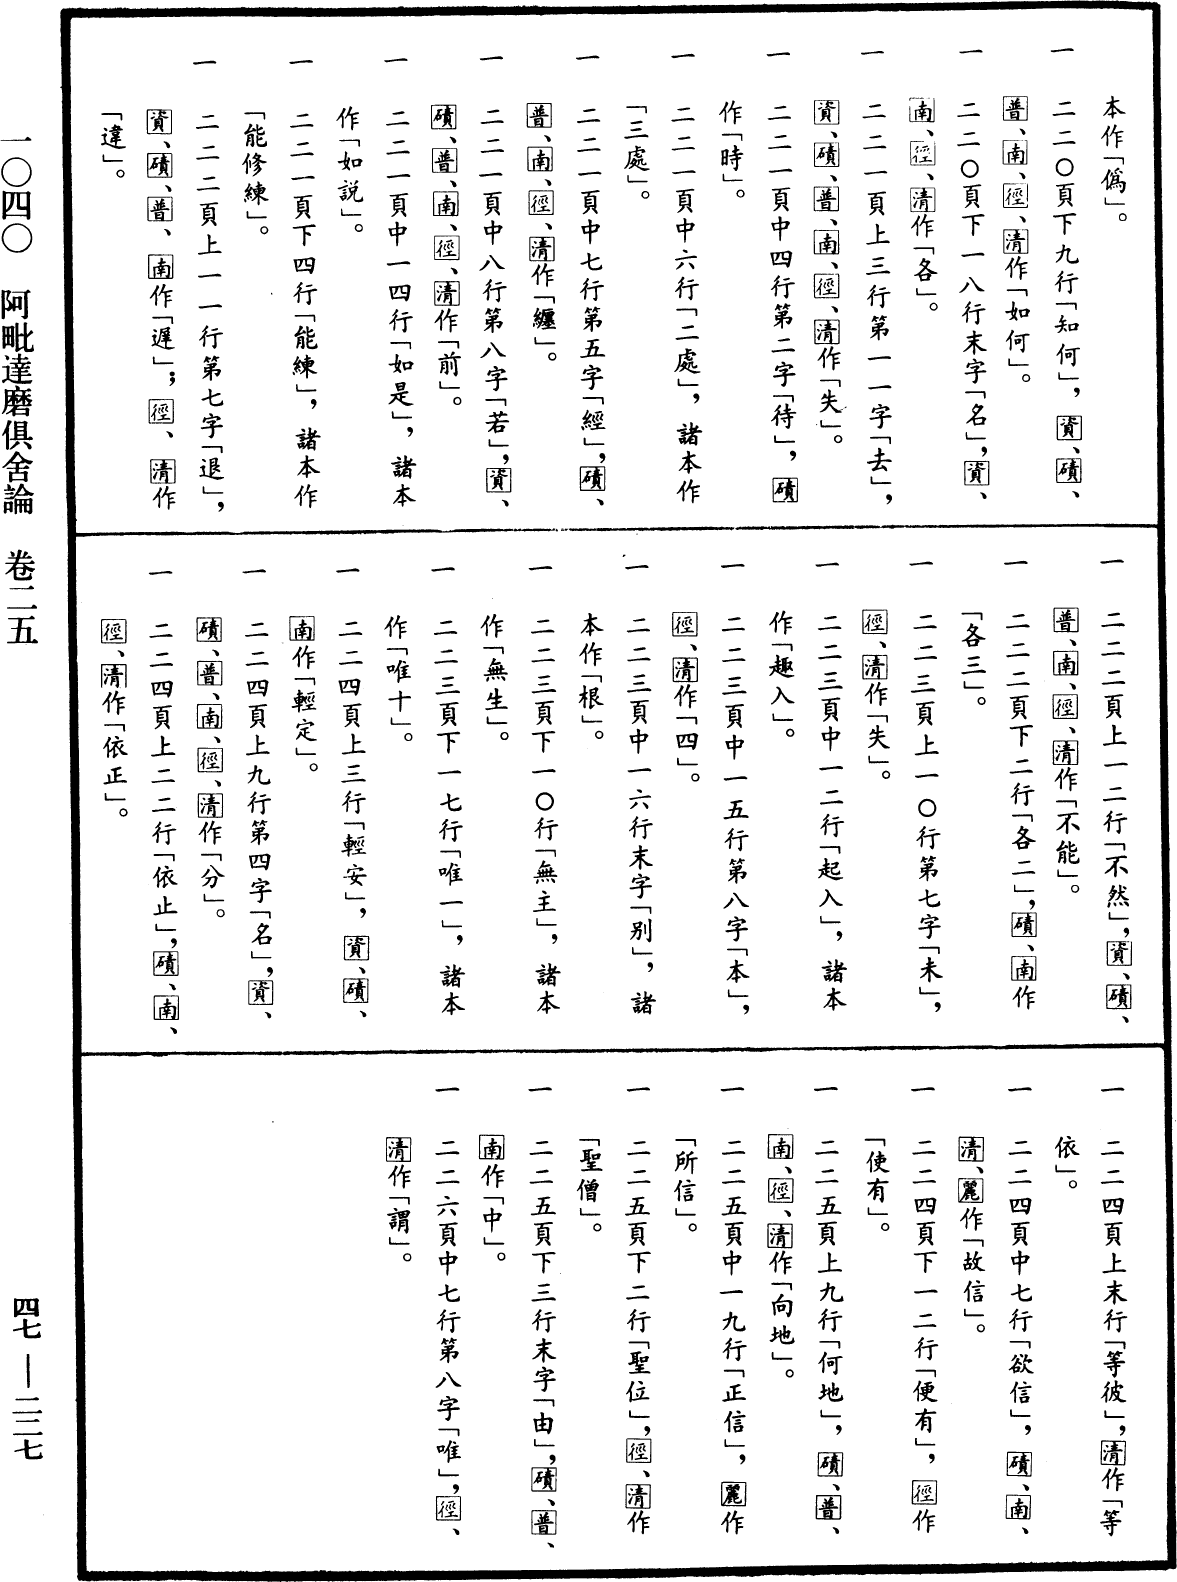 本作「僞」。
一　二二〇頁下九行「知何」，資、磧、
普、南、徑、清作「如何」。
一　二二〇頁下一八行末字「名」，資、
南、徑、清作「各」。
一　二二一頁上三行第一一字「去」，
資、磧、普、南、徑、清作「失」。
一　二二一頁中四行第二字「待」，磧
作「時」。
一　二二一頁中六行「二處」，諸本作
「三處」。
一　二二一頁中七行第五字「經」，磧、
普、南、徑、清作「纏」。
一　二二一頁中八行第八字「若」，資、
磧、普、南、徑、清作「前」。
一　二二一頁中一四行「如是」，諸本
作「如説」。
一　二二一頁下四行「能練」，諸本作
「能修練」。
一　二二二頁上一一行第七字「退」，
資、磧、普、南作「遲」；徑、清作
「違」。
一　二二二頁上一二行「不然」，資、磧、
普、南、徑、清作「不能」。
一　二二二頁下二行「各二」，磧、南作
「各三」。
一　二二三頁上一〇行第七字「未」，
徑、清作「失」。
一　二二三頁中一二行「起入」，諸本
作「趣入」。
一　二二三頁中一五行第八字「本」，
徑、清作「四」。
一　二二三頁中一六行末字「别」，諸
本作「根」。
一　二二三頁下一〇行「無主」，諸本
作「無生」。
一　二二三頁下一七行「唯一」，諸本
作「唯十」。
一　二二四頁上三行「輕安」，資、磧、
南作「輕定」。
一　二二四頁上九行第四字「名」，資、
磧、普、南、徑、清作「分」。
一　二二四頁上二二行「依止」，磧、南、
徑、清作「依正」。
一　二二四頁上末行「等彼」，清作「等
依」。
一　二二四頁中七行「欲信」，磧、南、
清、麗作「故信」。
一　二二四頁下一二行「便有」，徑作
「使有」。
一　二二五頁上九行「何地」，磧、普、
南、徑、清作「向地」。
一　二二五頁中一九行「正信」，麗作
「所信」。
一　二二五頁下二行「聖位」，徑、清作
「聖僧」。
一　二二五頁下三行末字「由」，磧、普、
南作「中」。
一　二二六頁中七行第八字「唯」，徑、
清作「謂」。
一〇四〇　阿毗達磨俱舍論　卷二五
四七—二二七